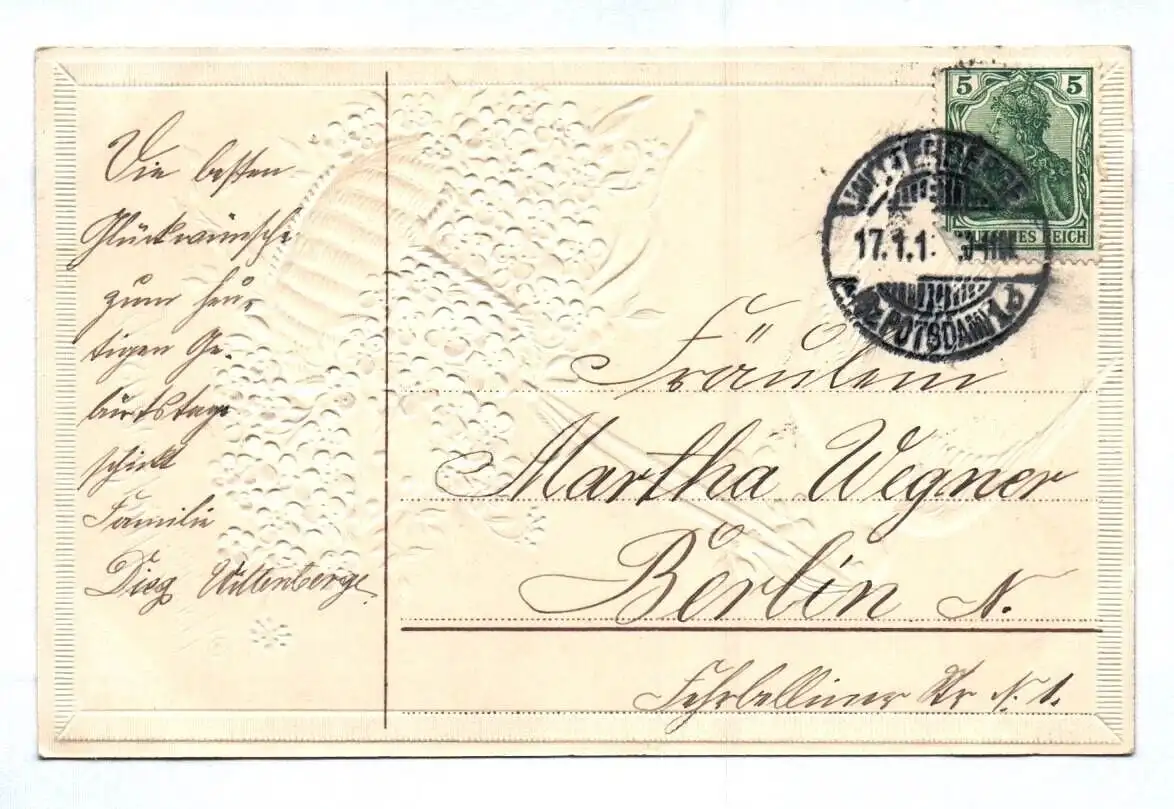 Die besten
Glückwünsche
zum heu-
tigen Ge-
burtstage
schickt
Familie
Dieg Wittenberge.
5 5
DEUTSCHES REICH
WITTENBERGE
17.1.1
Bz. POTSDAM 1 b
Fräulein
Martha Wegner
Berlin N.
Fehrbelliner Str N. 1.